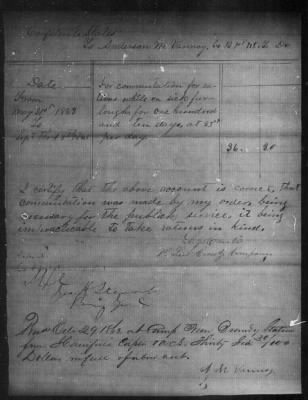 Confederate States
To Anderson M. Vannoy, Co B 1st N.C. Dr
Date
From
May 21st 1862
to
Sept 8th 1862
For commutation for ra-
tions while on sick fur-
lough for one hundred
and ten days, at 33cts
per day.
36. 30
I certify that the above account is correct, that
commutation was made by my order, being
necessary for the public service, it being
impracticable to take rations in kind.
Company
Brig Genl
1862 at Camp Near Station
from Hamilton Capt Thirty Six 30/100
Dollars in full of above acct.
A M Vannoy